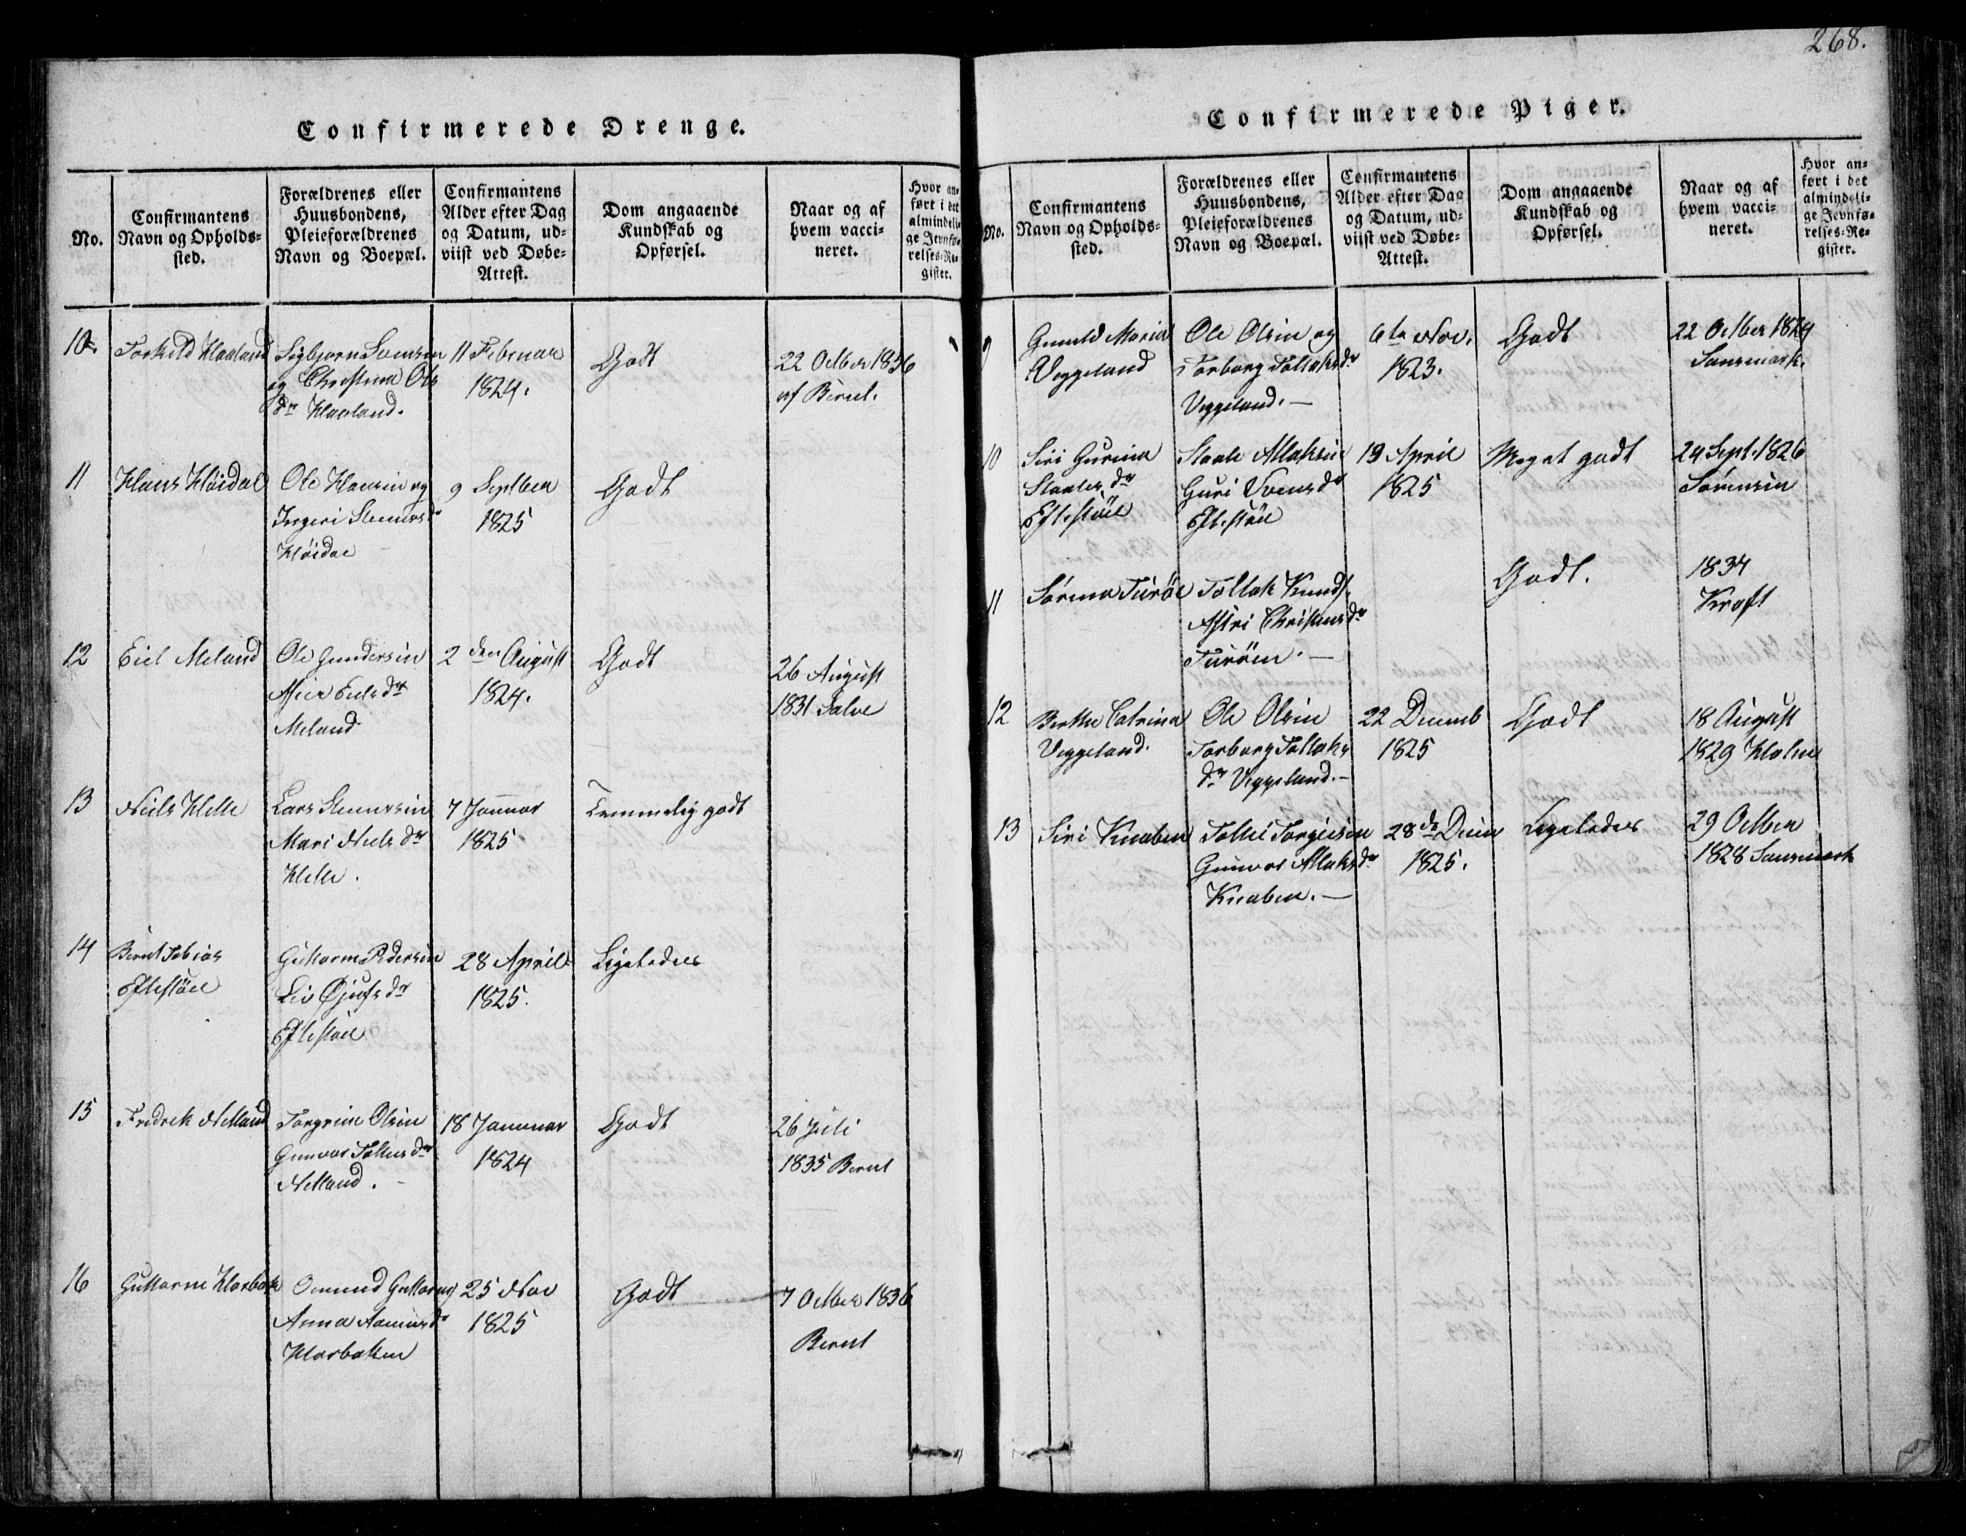 268.
Confirmerede Drenge.
No.
Confirmantens
Navn og Opholds-
sted.
Forældrenes eller
Huusbondens,
Pleieforældrenes
Navn og Boepæl.
Confirmantens
Alder efter Dag
og Datum, ud-
viist ved Døbe-
Attest.
Dom angaaende
Kundskab og
Opførsel.
Naar og af
hvem vacci-
neret.
Hvor an-
ført i det
almindeli-
ge Jevnfø-
relses-Re-
gister.
10
Torkild Haaland
Sigbjørn Svensen
og Christina Ols
dr Haaland.
11 Februar
1824.
Godt
22 Octber 1836
af Bernt.
11
Hans Høidal
Ole Hansen og
Ingeri Steners dr
Høidal
9 Septber
1825
Godt
12
Eiel Meland
Ole Gundersen
Eiels dr
Meland
2 den August
1824.
Godt
26 August
1831 Salve
13
Niels Helle
Lars Stenersen
Mari Niels dr
Helle.
7 Januar
1825
Temmelig godt
14
Bernt Tobias
Eftestøel
Guttorm Pedersen
Liv dr
Eftestøel
28 April
1825.
Ligeledes
15
Fredrek Netland
Torgrim Olsen
Gunvor Tollus dr
Netland.
18 Januar
1824
Godt
26 Juli
1835 Bernt
16
Guttorm Horbak
Omund Guttorms
Anna dr
Horbaken
25 Nov
1825
Godt
7 Octber 1836
Bernt
Confirmerede Piger.
No.
Confirmantens
Navn og Opholds-
sted.
Forældrenes eller
Huusbondens,
Pleieforældrenes
Navn og Boepæl.
Confirmantens
Alder efter Dag
og Datum, ud-
viist ved Døbe-
Attest.
Dom angaaende
Kundskab og
Opførsel.
Naar og af
hvem vacci-
neret.
Hvor an-
ført i det
almindeli-
ge Jevnfø-
relses-Re-
gister.
9
Gunild Maria
Veggeland
Ole Olsen og
Torborg Tollaks dr
Veggeland.
6te Nov.
1823.
Godt
22 Octber 1824
Sansmark.
10
Siri Gurina
Staales dr
Eftestøel
Staale Atlaksen
Guri Svens dr
Eftestøel
19 April
1825
Meget godt
24 Sept. 1826
Sørensen
11
Sørina Turøe
Tollak Knuds.
Astri Christens dr
Turøen.
Godt.
1834
Kraft
12
Berthe Catrina
Veggeland.
Ole Olsen
Torborg Tollaks
dr Veggeland.
22 Decemb
1825
Godt
18 August
1829 Holm
13
Siri Knaben
Tollei Torgiusen
Gunvor Atlaks dr
Knaben.
28de Decem
1825.
Ligeledes
29 Octber
1828 Sansmark